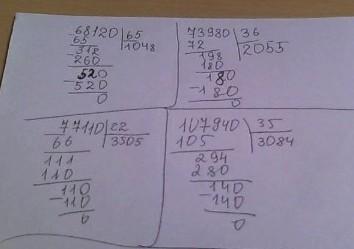 68120 65
65 1048
312
260
520
520
0
73980 36
72 2055
198
180
180
-180
0
77110 22
66 3505
111
110
110
-110
0
107940 35
105 3084
294
280
140
-140
0